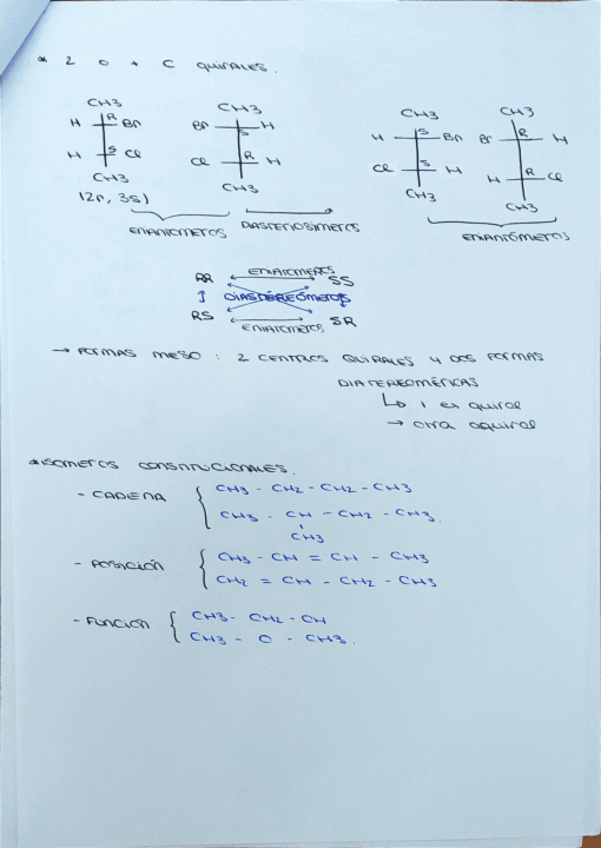 * 2 o + C quirales.
CH3 CH3 CH3 CH3
H R Br Br H H S Br Br R H
S
H S Cl Cl R H Cl S H H R Cl
CH3 CH3 CH3 CH3
(2R, 3S)
ENANTIOMEROS DIASTEREOISÓMEROS ENANTIÓMEROS
RR ENANTIOMEROS SS
DIASTÉREÓMEROS
RS ENANTIOMEROS SR
→ FORMAS MESO : 2 CENTROS QUIRALES Y DOS FORMAS
DIATEREOMÉRICAS
↳ 1 es quiral
→ otra aquiral
* ISOMEROS CONSTITUCIONALES.
- CADENA { CH3 - CH2 - CH2 - CH3
CH3 - CH - CH2 - CH3.
CH3
- POSICIÓN { CH3 - CH = CH - CH3
CH2 = CH - CH2 - CH3
- FUNCIÓN { CH3 - CH2 - CH
CH3 - O - CH3.